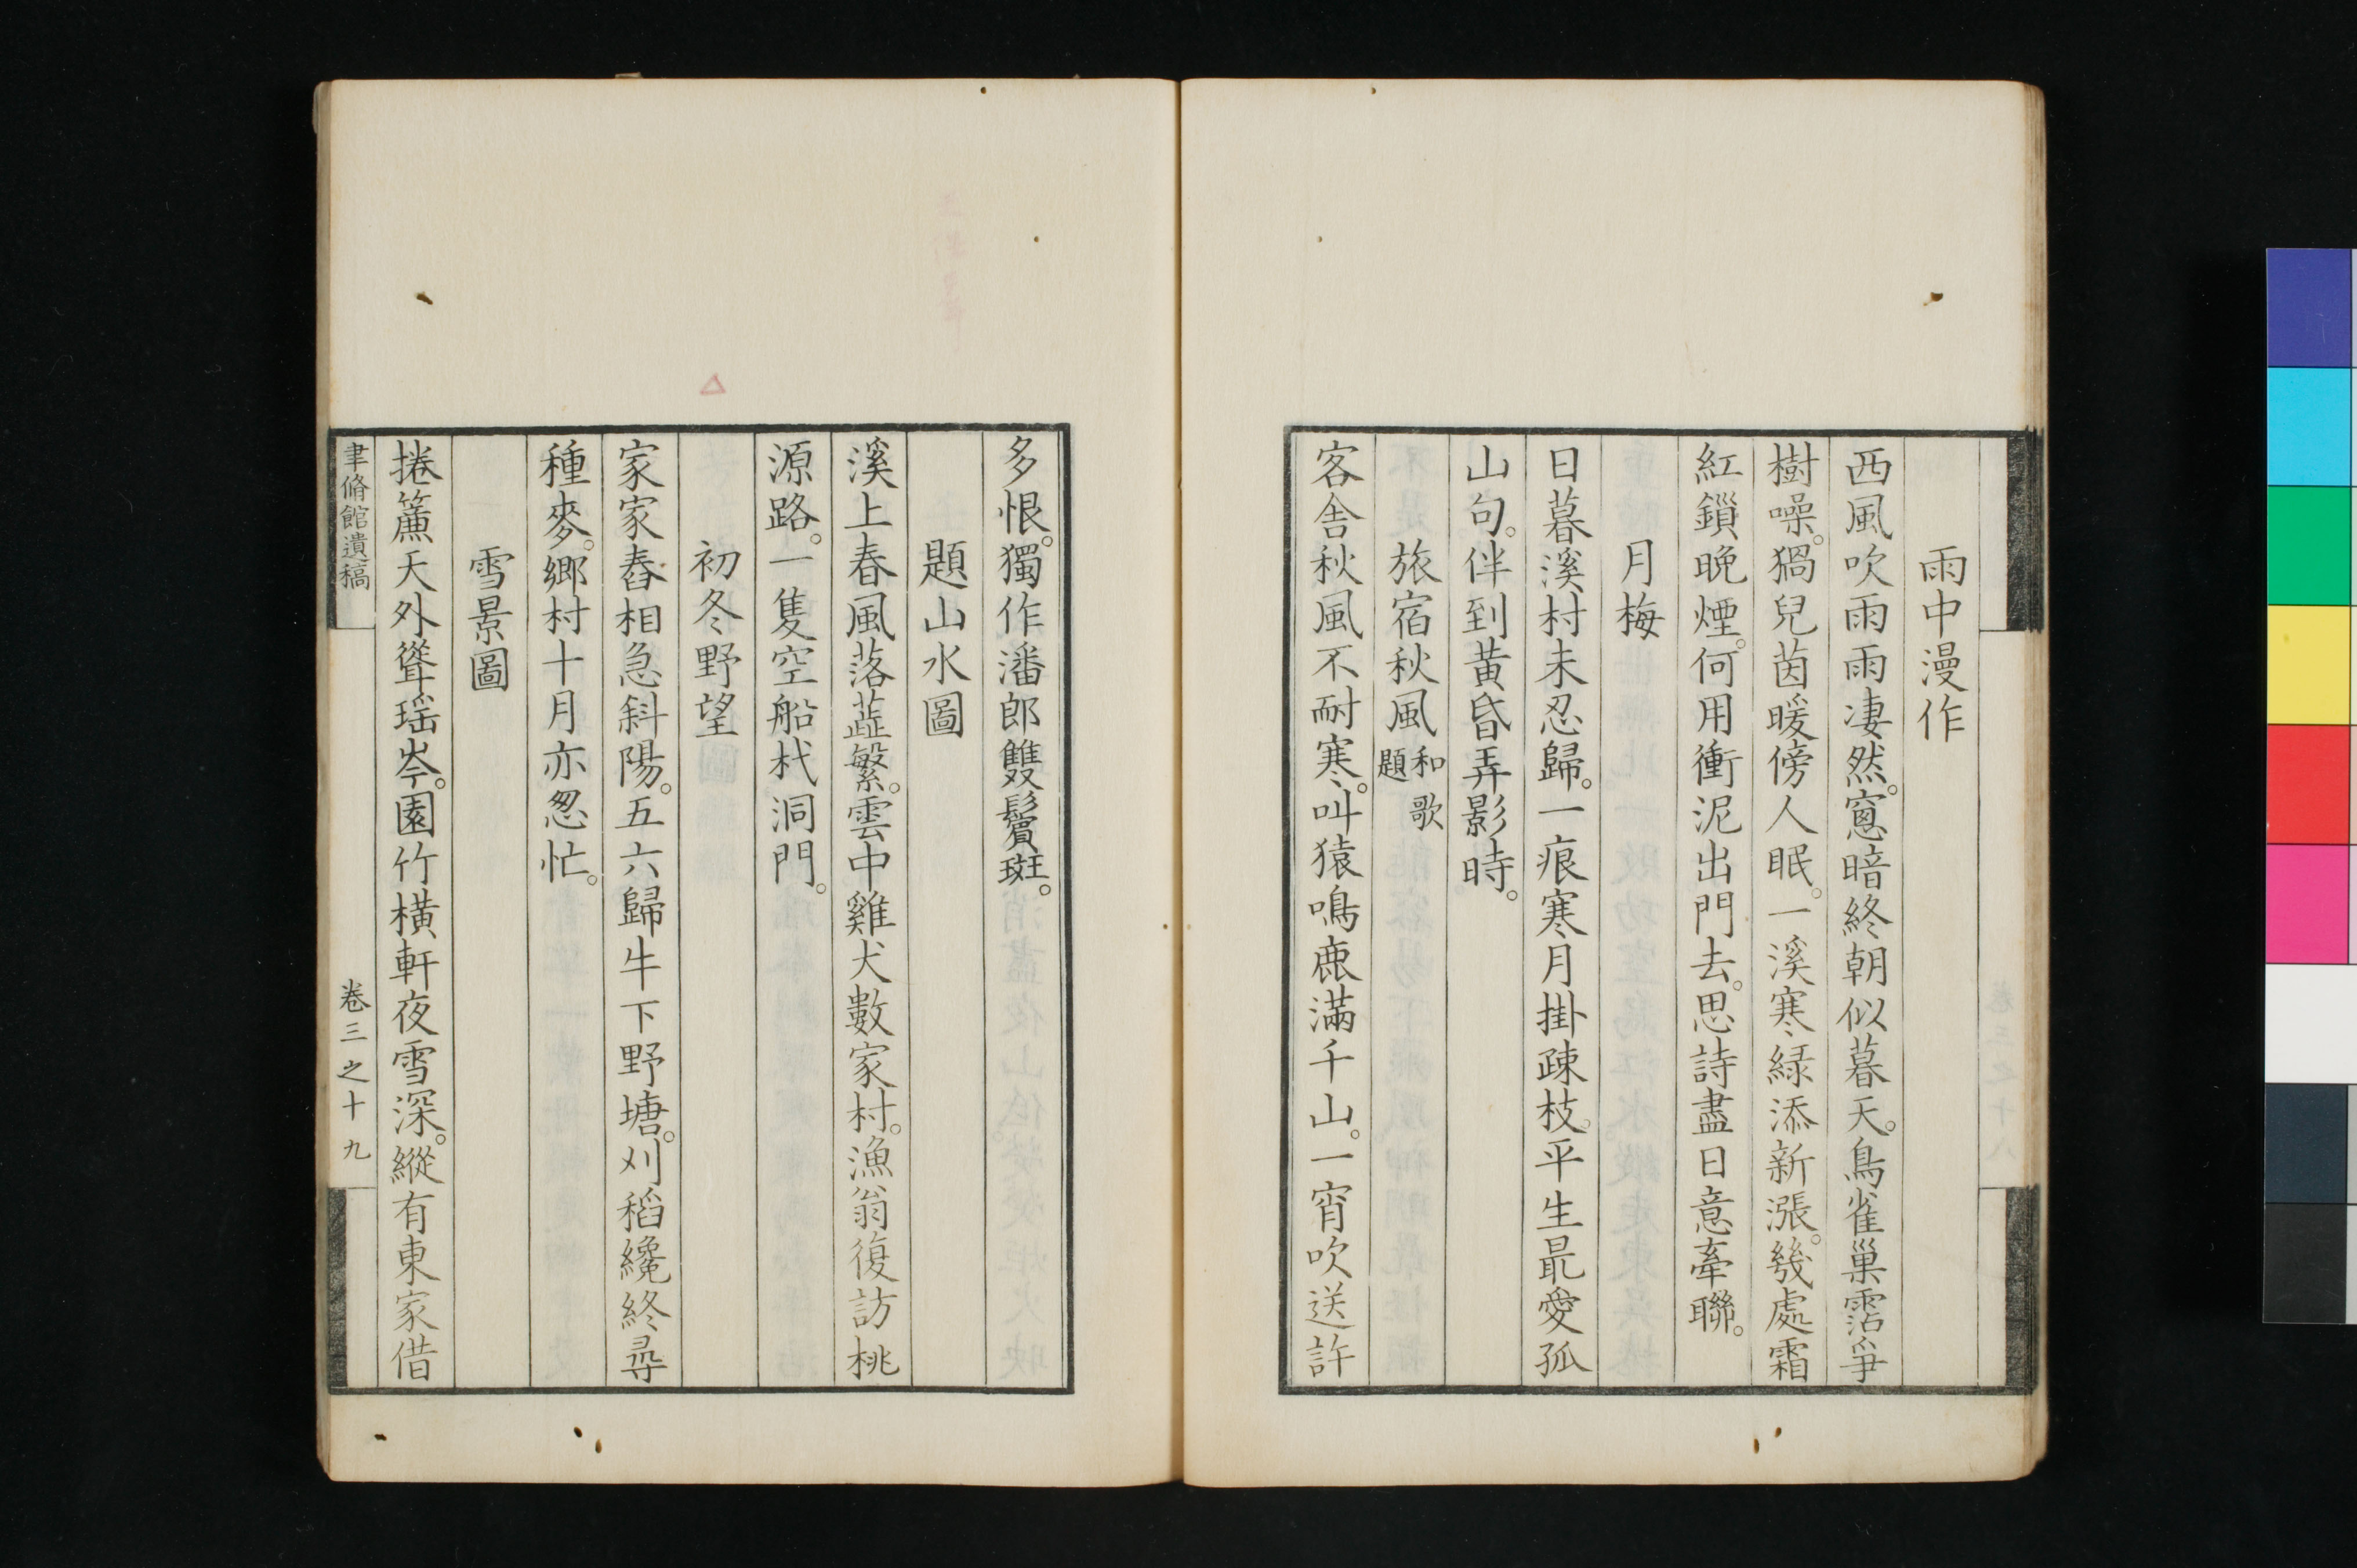 雨中漫作
西風吹雨雨凄然。窻暗終朝似暮天。鳥雀巢霑爭
樹噪。猧兒茵暖傍人眠。一溪寒緑添新漲。幾處霜
紅鎻晚煙。何用衝泥出門去。思詩盡日意牽聯。
月梅
日暮溪村未忍歸。一痕寒月掛疎枝。平生最愛孤
山句。伴到黃昏弄影時。
旅宿秋風和歌題
客舎秋風不耐寒。叫猿鳴鹿滿千山。一宵吹送許
多恨。獨作潘郎雙鬢斑。
題山水圖
溪上春風落蘂繁。雲中雞犬數家村。漁翁復訪桃
源路。一隻空船杙洞門。
初冬野望
家家舂相急斜陽。五六歸牛下野塘。刈稻纔終尋
種麥。鄉村十月亦怱忙。
雪景圖
捲簾天外聳瑶岑。園竹橫軒夜雪深。縱有東家借
聿脩館遺稿
卷三之十九